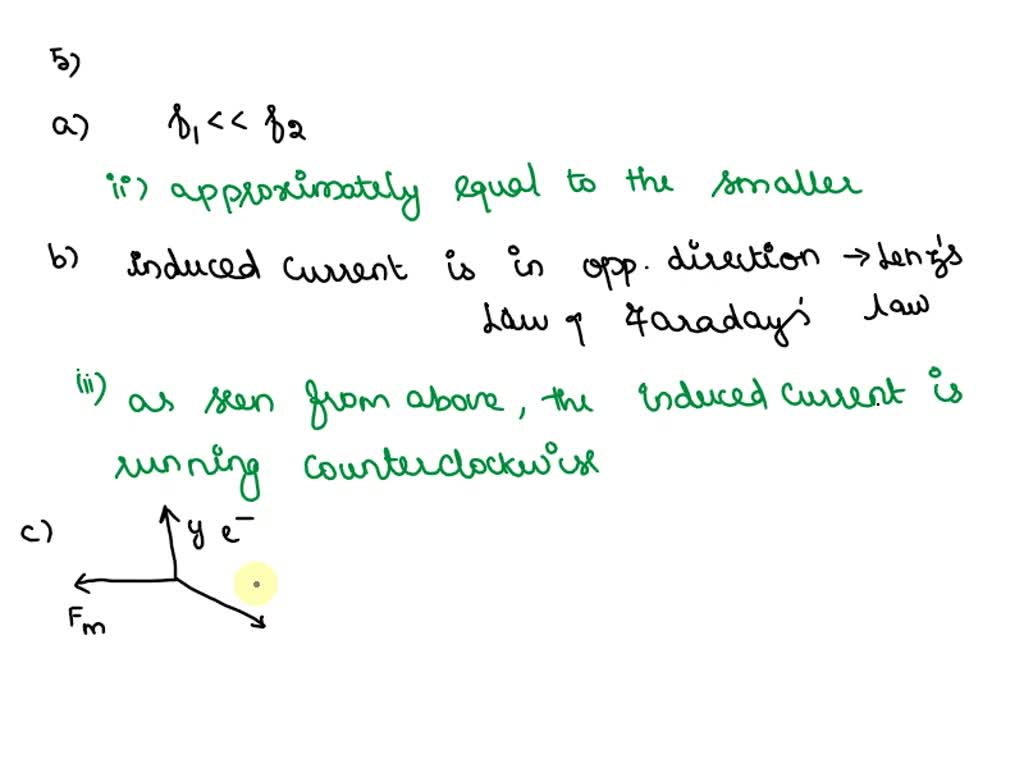 5)
a) f₁ << f₂
ii) approximately equal to the smaller
b) induced current is in opp. direction → Lenz's
Law & Faraday's law
(ii) as seen from above, the induced current is
running counterclockwise
c) y e⁻
Fm